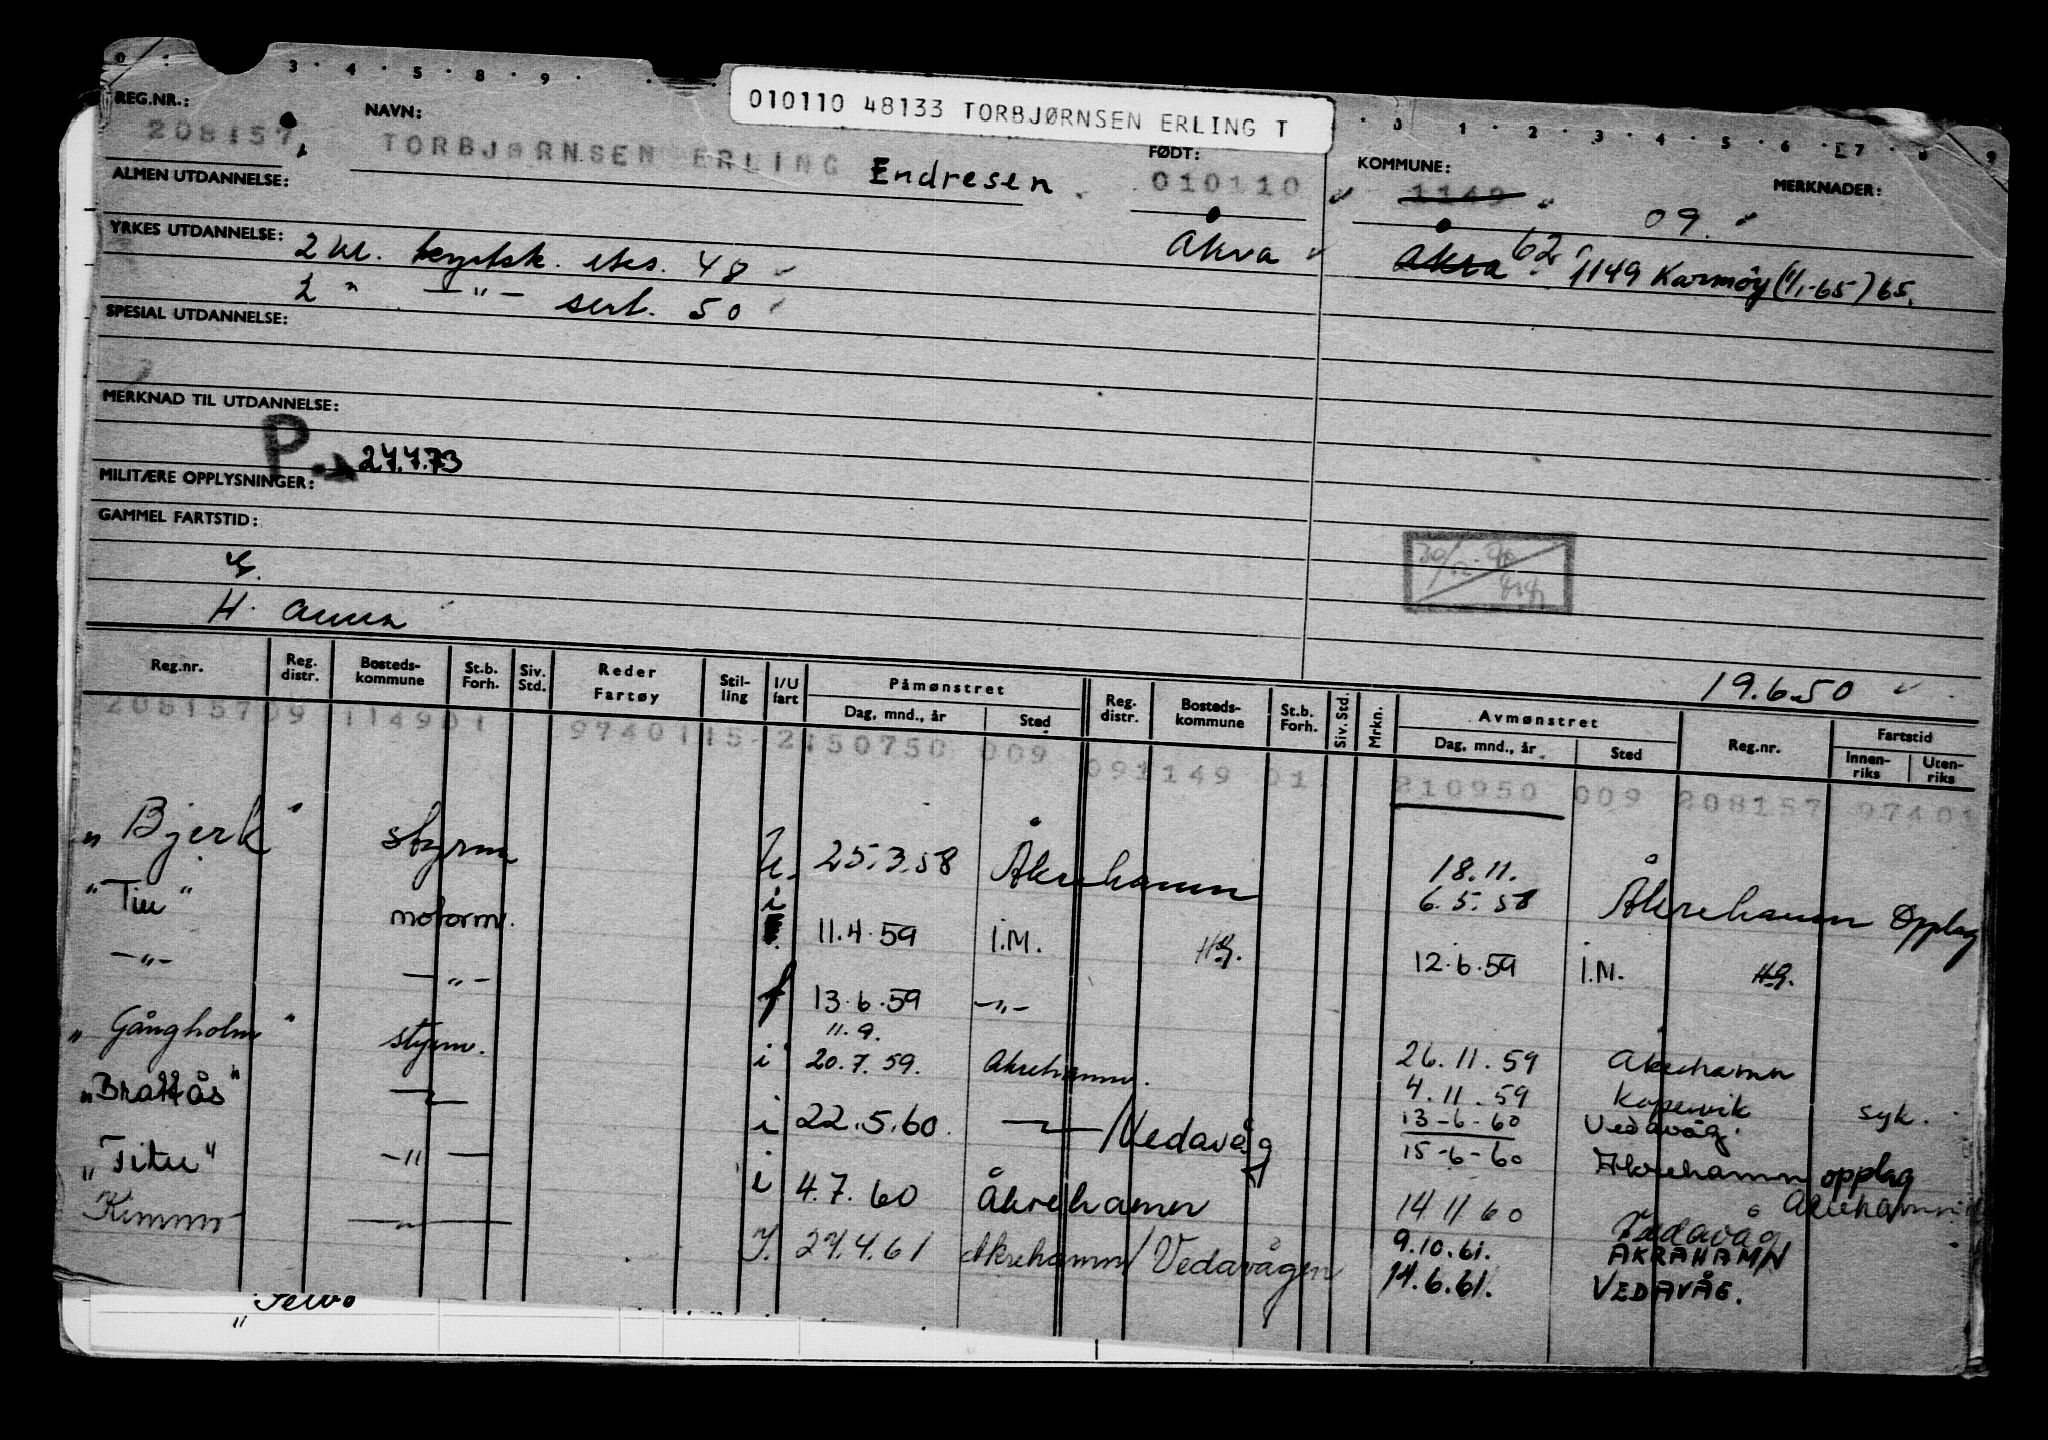 0 3 4 5 8 9
010110 48133 TORBJØRNSEN ERLING T
0 1 2 3 4 5 6 7 8 9
REG.NR.: NAVN: FØDT: KOMMUNE: MERKNADER:
208157 TORBJØRNSEN ERLING Endresen 010110 1149 09.
ALMEN UTDANNELSE:
YRKES UTDANNELSE: 2 kl. eks. 48 Åkra Åkra 62 1149 Karmøy (1/1-65) 65.
2 " —"— sert. 50
SPESIAL UTDANNELSE:
MERKNAD TIL UTDANNELSE:
P. 27.4.73
MILITÆRE OPPLYSNINGER:
GAMMEL FARTSTID:
G.
H. Anna
19.6.50
Reg.nr. Reg. distr. Bosteds-kommune St.b. Forh. Siv. Std. Reder Fartøy Stil-ling I/U fart Påmønstret Dag, mnd., år Sted Reg. distr. Bosteds-kommune St.b. Forh. Siv. Std. Mrkn. Avmønstret Dag, mnd., år Sted Reg.nr. Fartstid Innen-riks Uten-riks
20815709 114901 9740115 2150750 009 091149 01 210950 009 208157 97401
"Bjerk" styrm 25.3.58 Åkrehamn 18.11.
"Titu" motorm. i 11.4.59 I.M. HG. 6.5.58 Åkrehamn Opplag
—"— —"— f 13.6.59 —"— 12.6.59 I.M. HG.
11.9.
"Gangholm" styrm. i 20.7.59. Åkrehamn. 26.11.59 Åkrehamn
4.11.59 Kopervik syk.
"Brattås" i 22.5.60. /Vedavåg 13-6-60 Vedavåg.
15-6-60 Åkrehamn opplag
"Titu" —"— i 4.7.60 Åkrehamn 14 11 60 Vedavåg Åkrehamn
Kimmo —"— I. 27.4.61 Åkrehamn/Vedavågen 9.10.61. ÅKRAHAMN
14.6.61. VEDAVÅG.
"